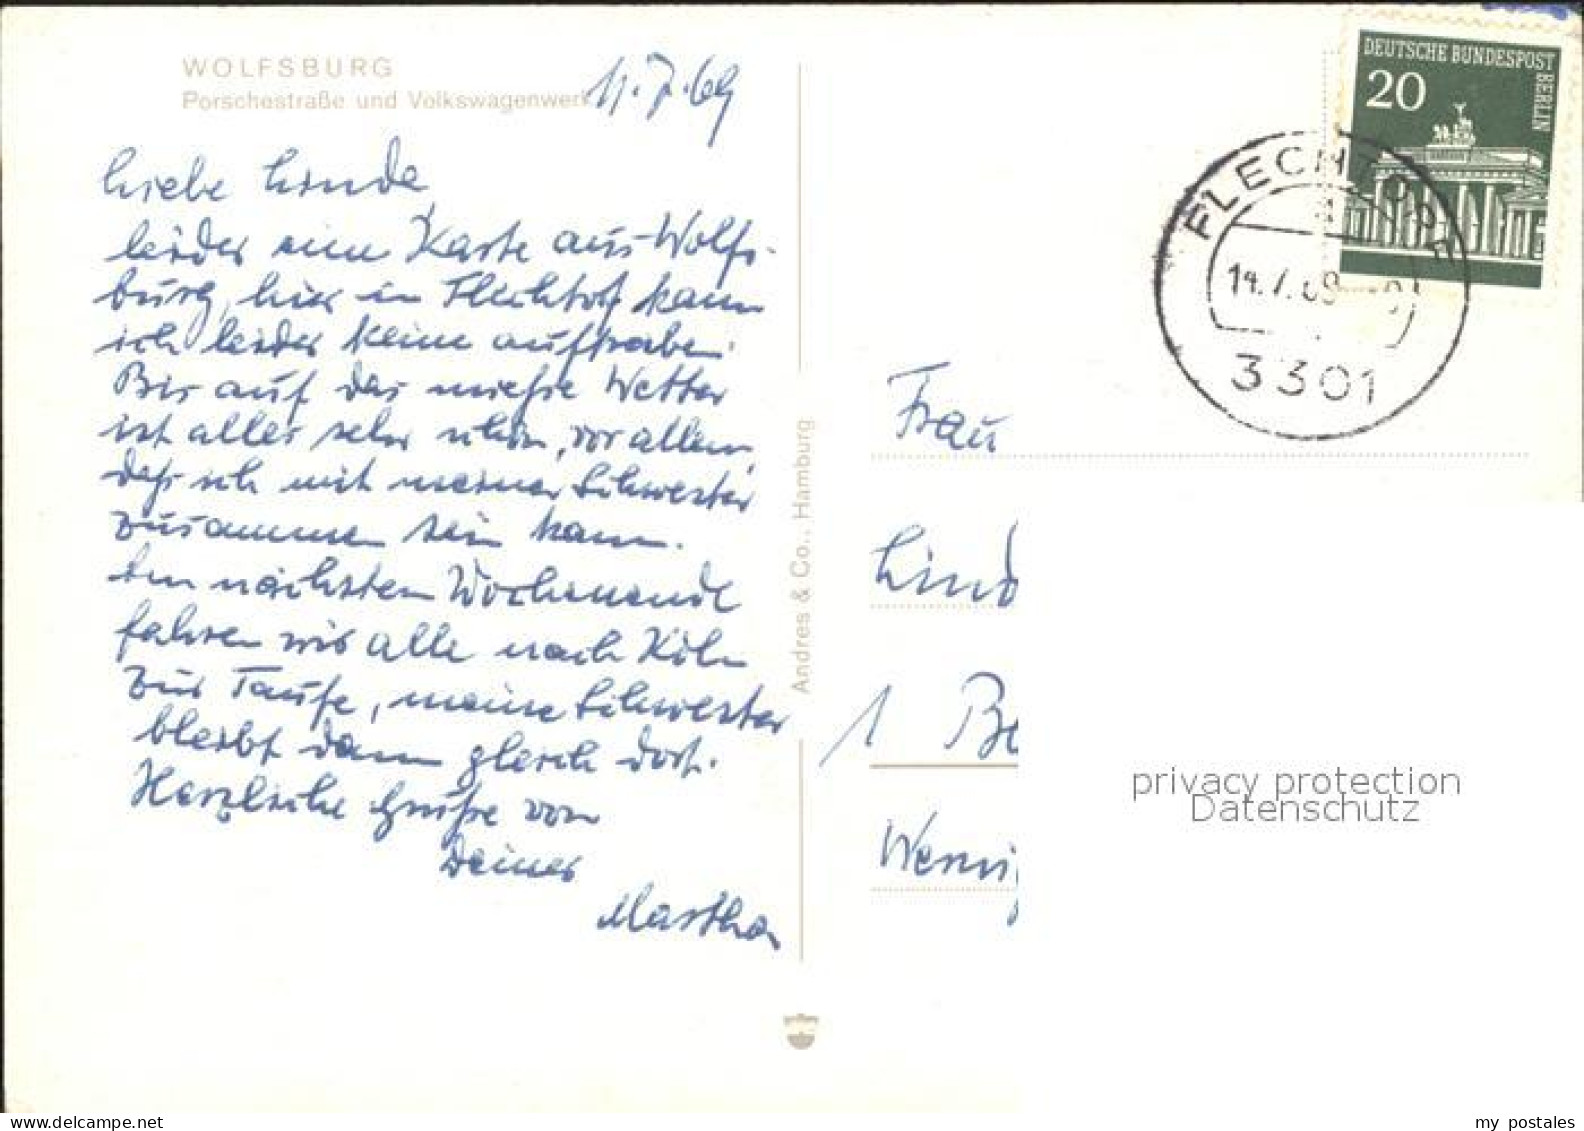 WOLFSBURG
Porschestraße und Volkswagenwerk
11.7.69
Liebe Linde
leider eine Karte aus Wolfs-
burg, hier in Flechtorf kann
ich leider keine auftraben.
Bis auf das miese Wetter
ist alles sehr schön, vor allem,
daß ich mit meiner Schwester
zusammen sein kann.
Am nächsten Wochenende
fahren wir alle nach Köln
zur Taufe, meine Schwester
bleibt dann gleich dort.
Herzliche Grüße von
Deiner
Martha
Andres & Co., Hamburg
DEUTSCHE BUNDESPOST
BERLIN
20
FLECHTORF
14.7.69
3301
Frau
Lind
1 Be
Wernig
privacy protection
Datenschutz
www.delcampe.net
my postales